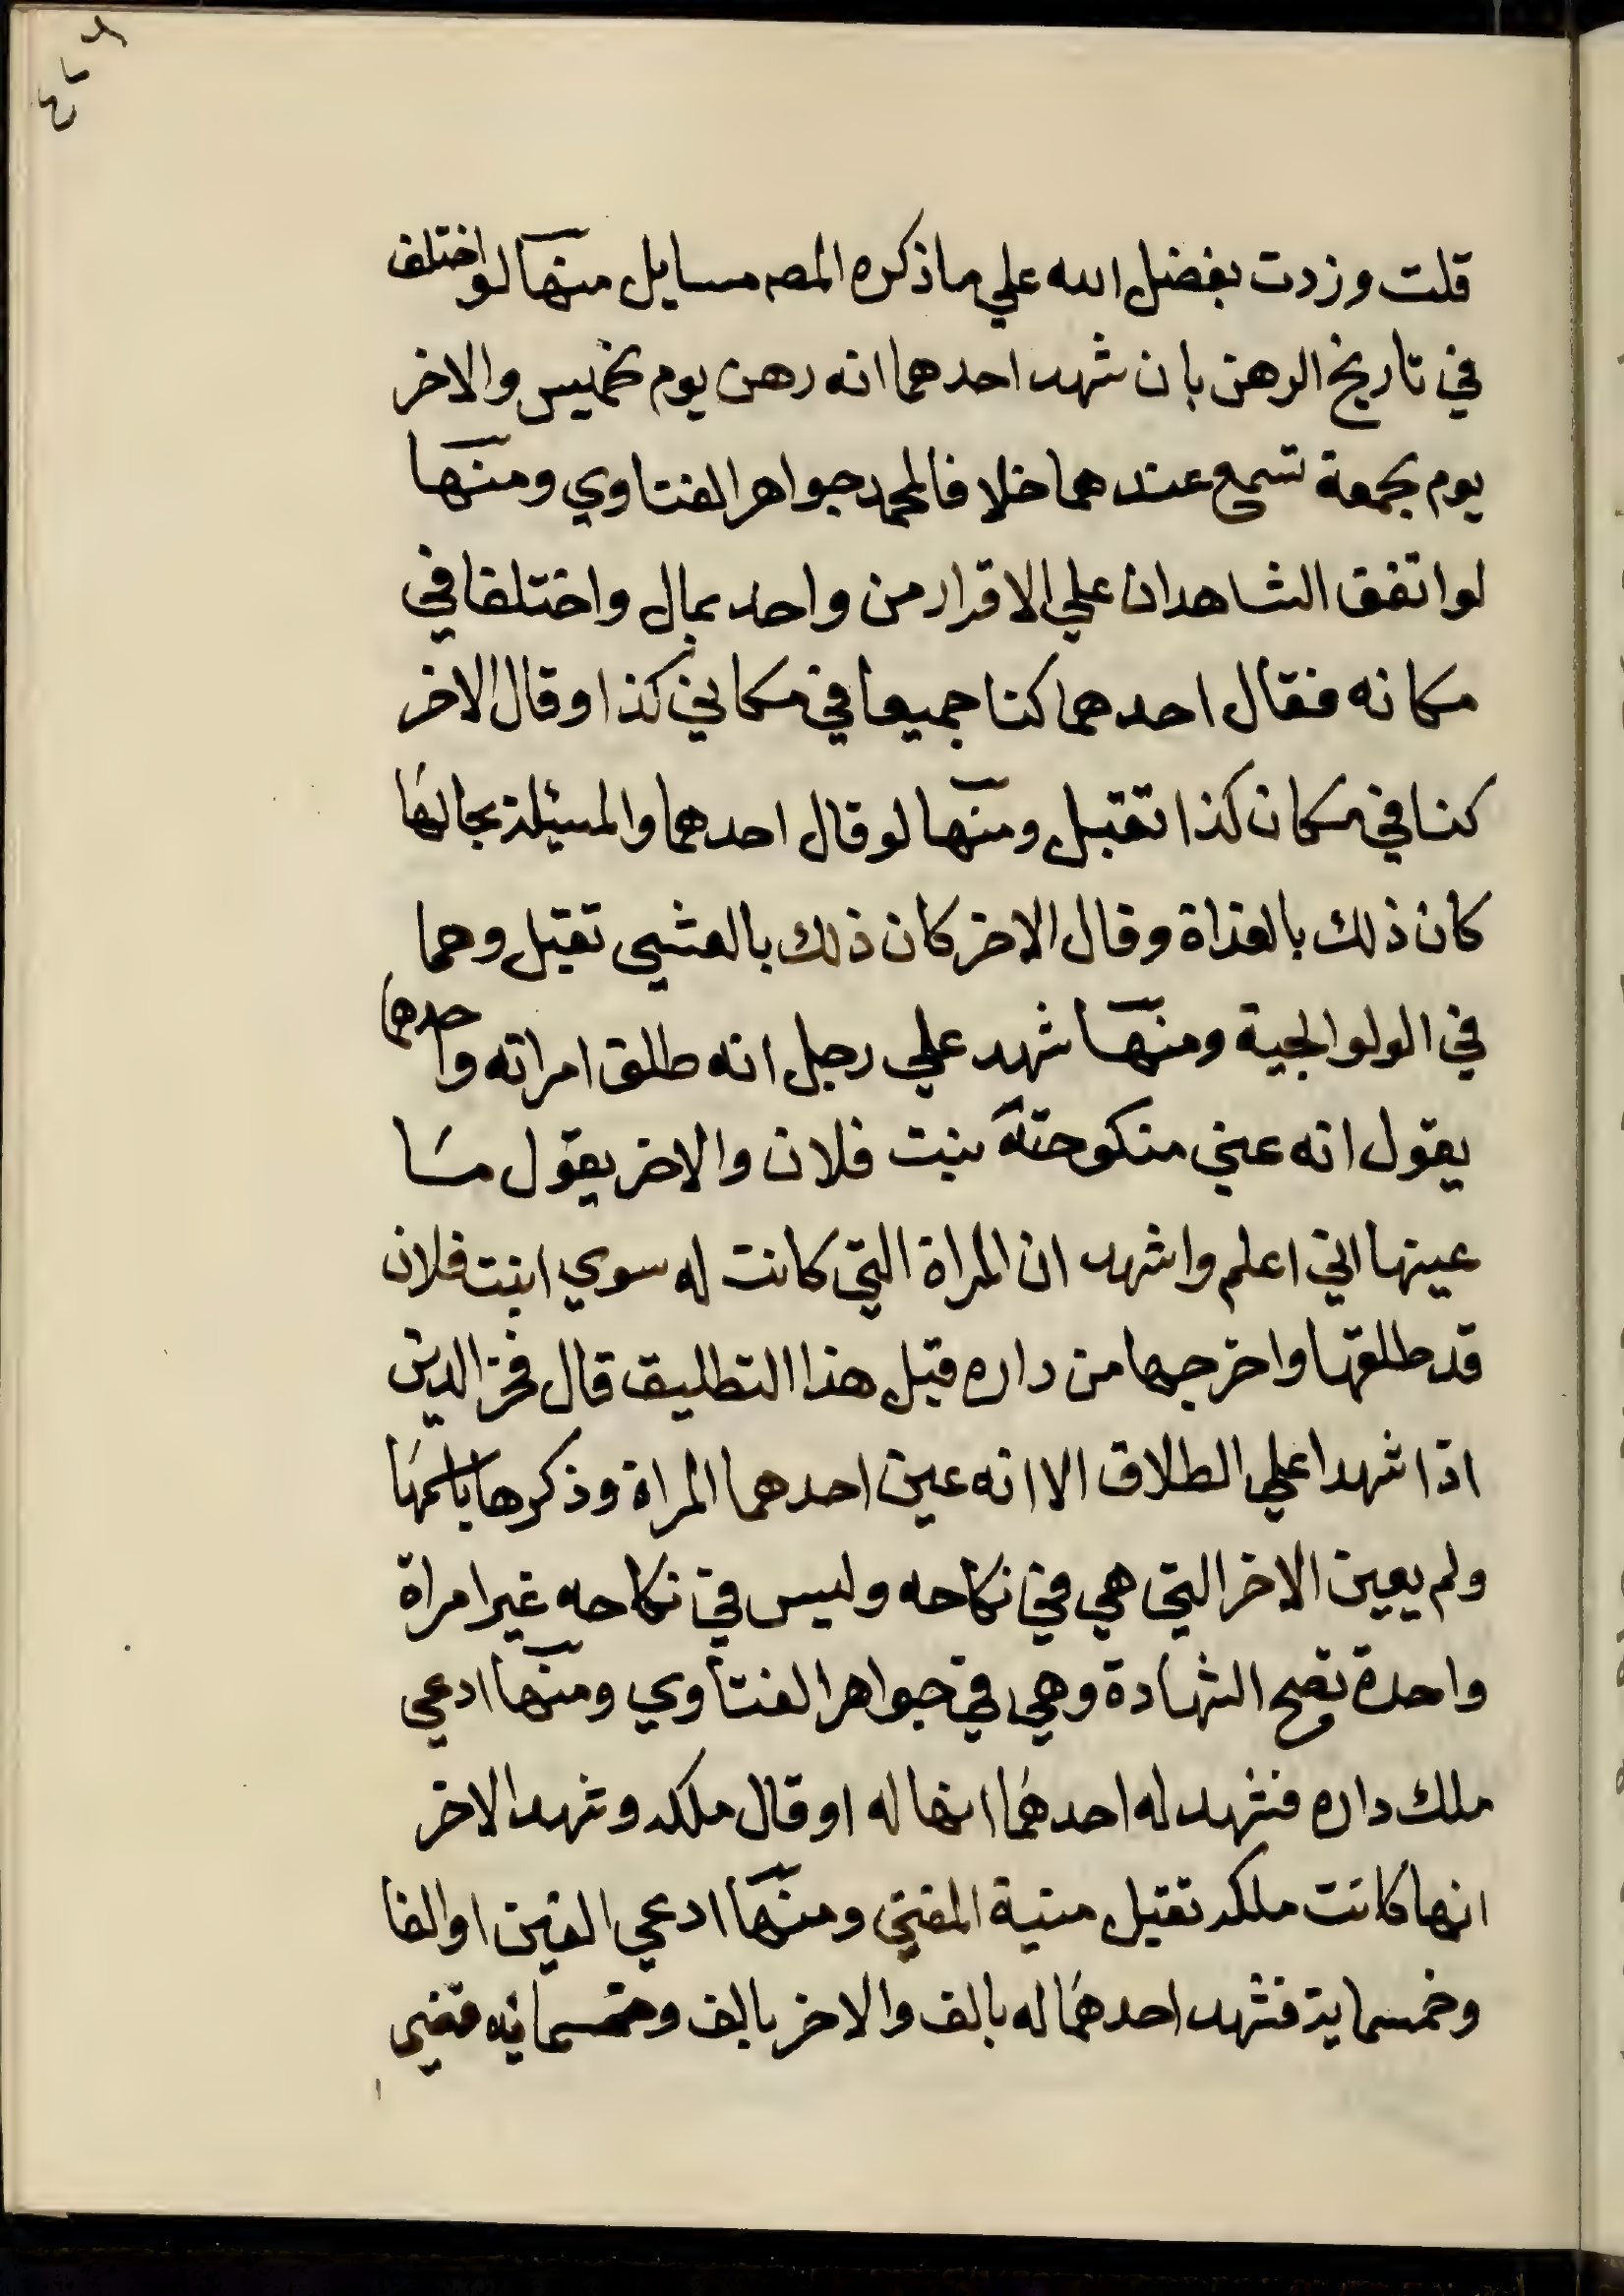 قلت وزدت بفضل الله علي ماذكره المصـ مسايل منها لو اختلف
في تاريخ الرهن بان شهد احدهما انه رهن يوم الخميس والاخر
يوم الجمعة تسمع عندهما خلافا لمحمد جواهر الفتاوي ومنها
لو اتفق الشاهدان علي الاقرار من واحد بمال واختلفا في
مكانه فقال احدهما كنا جميعا في مكاني كذا وقال الاخر
كنا في مكان كذا تقبل ومنها لو قال احدهما والمسيلة بحالها
كان ذلك بالغداة وقال الاخر كان ذلك بالعشي تقبل وهما
في الولوالجية ومنها شهد علي رجل انه طلق امراته واحدهما
يقول انه عني منكوحته بنت فلان والاخر يقول ما
عينها اني اعلم واشهد ان المراة التي كانت له سوي ابنت فلان
قد طلقها واخرجها من داره قبل هذا التطليق قال فخر الدين
اذا شهدا علي الطلاق الا انه عين احدهما المراة وذكرها باسمها
ولم يعين الاخر التي هي في نكاحه وليس في نكاحه غير امراة
واحدة تصح الشهادة وهي في جواهر الفتاوي ومنها ادعي
ملك داره فشهد له احدهما انها له او قال ملكه وشهد الاخر
انها كانت ملكه تقبل منية المفتي ومنها ادعي الفين او الفا
وخمسماية فشهد احدهما له بالف والاخر بالف وخمسمائه قضي